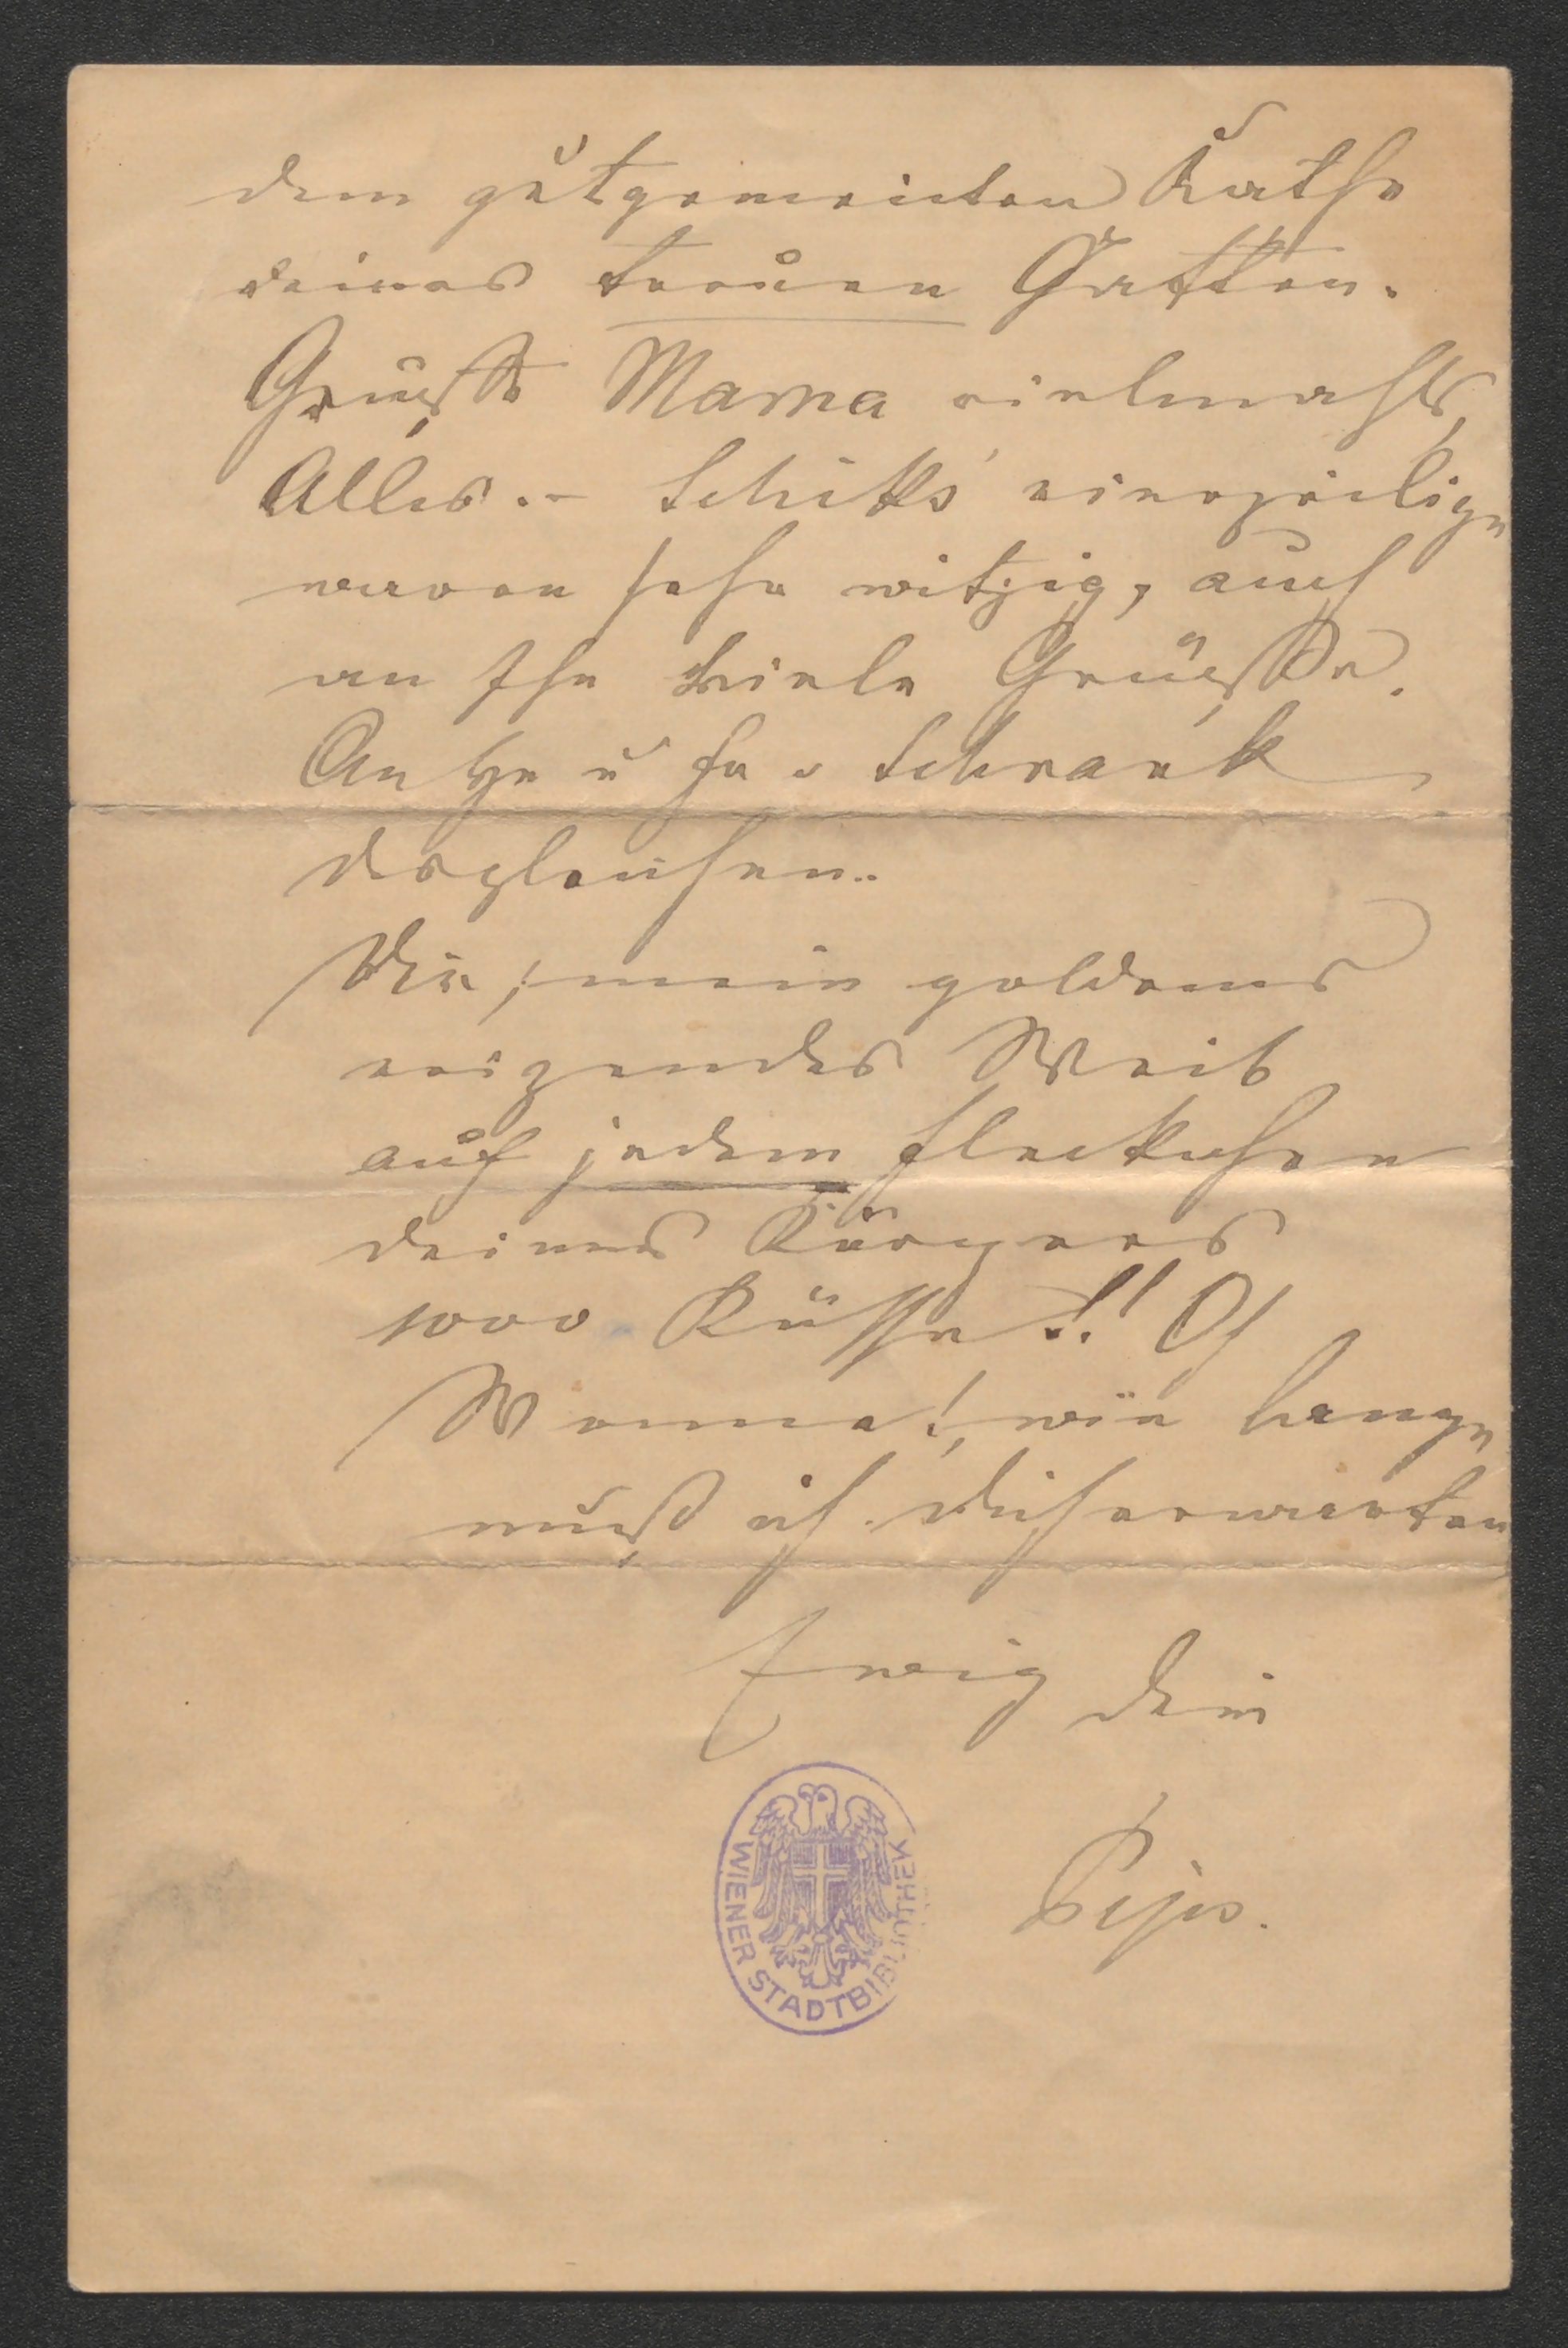 dem gutgemeinten Rathe
deines treuen Gatten.
Grüsse Mama vielmahls,
Alles. – Schik's einzeilige
waren sehr witzig, auch
an Ihn viele Grüsse.
An Hr u Fr v Schrank
desgleichen.
Dir, mein goldenes
reizendes Weib
auf jedem Fleckchen
deines Körpers
1000 Küsse!! Oh
Wonne!, wie lange
muß ich dich erwarten
Ewig dein
Pepi.
WIENER STADTBIBLIOTHEK